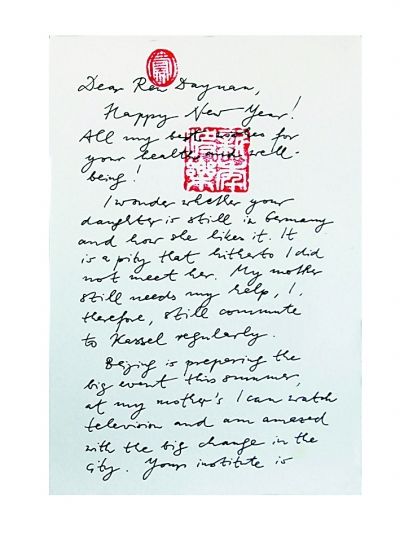 Dear Ren Dayuan,
Happy New Year!
All my best wishes for
your health and well-
being!
新年
快樂
I wonder whether your
daughter is still in Germany
and how she likes it. It
is a pity that hitherto I did
not meet her. My mother
still needs my help, I,
therefore, still commute
to Kassel regularly.
Beijing is preparing the
big event this summer,
at my mother's I can watch
television and am amazed
with the big change in the
city. Your institute is